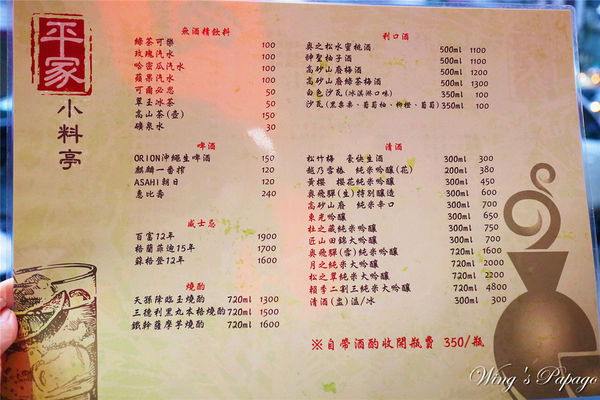 平家
小料亭
無酒精飲料
綠茶可樂 100
玫瑰汽水 100
哈密瓜汽水 100
蘋果汽水 100
可爾必思 50
翠玉冰茶 50
高山茶(壺) 150
礦泉水 30
啤酒
ORION沖繩生啤酒 150
麒麟一番搾 120
ASAHI朝日 120
惠比壽 240
威士忌
百富12年 1900
格蘭菲迪15年 1700
蘇格登12年 1600
燒酌
天孫降臨玉燒酌 720ml 1300
三德利黑丸本格燒酌 720ml 1500
鐵幹薩摩芋燒酌 720ml 1600
利口酒
奧之松水蜜桃酒 500ml 1100
神聖柚子酒 500ml 1100
高砂山廢梅酒 500ml 1200
高砂山廢綠茶梅酒 500ml 1300
白色沙瓦(冰淇淋口味) 350ml 100
沙瓦(黑棗棗、葡萄柚、柳橙、葡萄) 350ml 100
清酒
松竹梅 豪快生酒 300ml 300
越乃雪椿 純米吟釀(花) 200ml 380
黃櫻 櫻花純米吟釀 300ml 450
奧飛驒(生)特別釀造 300ml 600
高砂山廢 純米辛口 300ml 700
東光吟釀 300ml 650
杜之藏純米吟釀 300ml 750
匠山田錦大吟釀 300ml 700
奧飛驒(雪)純米吟釀 720ml 1600
月之純米大吟釀 720ml 2000
松之翠純米大吟釀 720ml 2200
賴季二割三純米大吟釀 720ml 4800
清酒(盅)溫/冰 300ml 300
※自帶酒酌收開瓶費 350/瓶
Wing's Papago